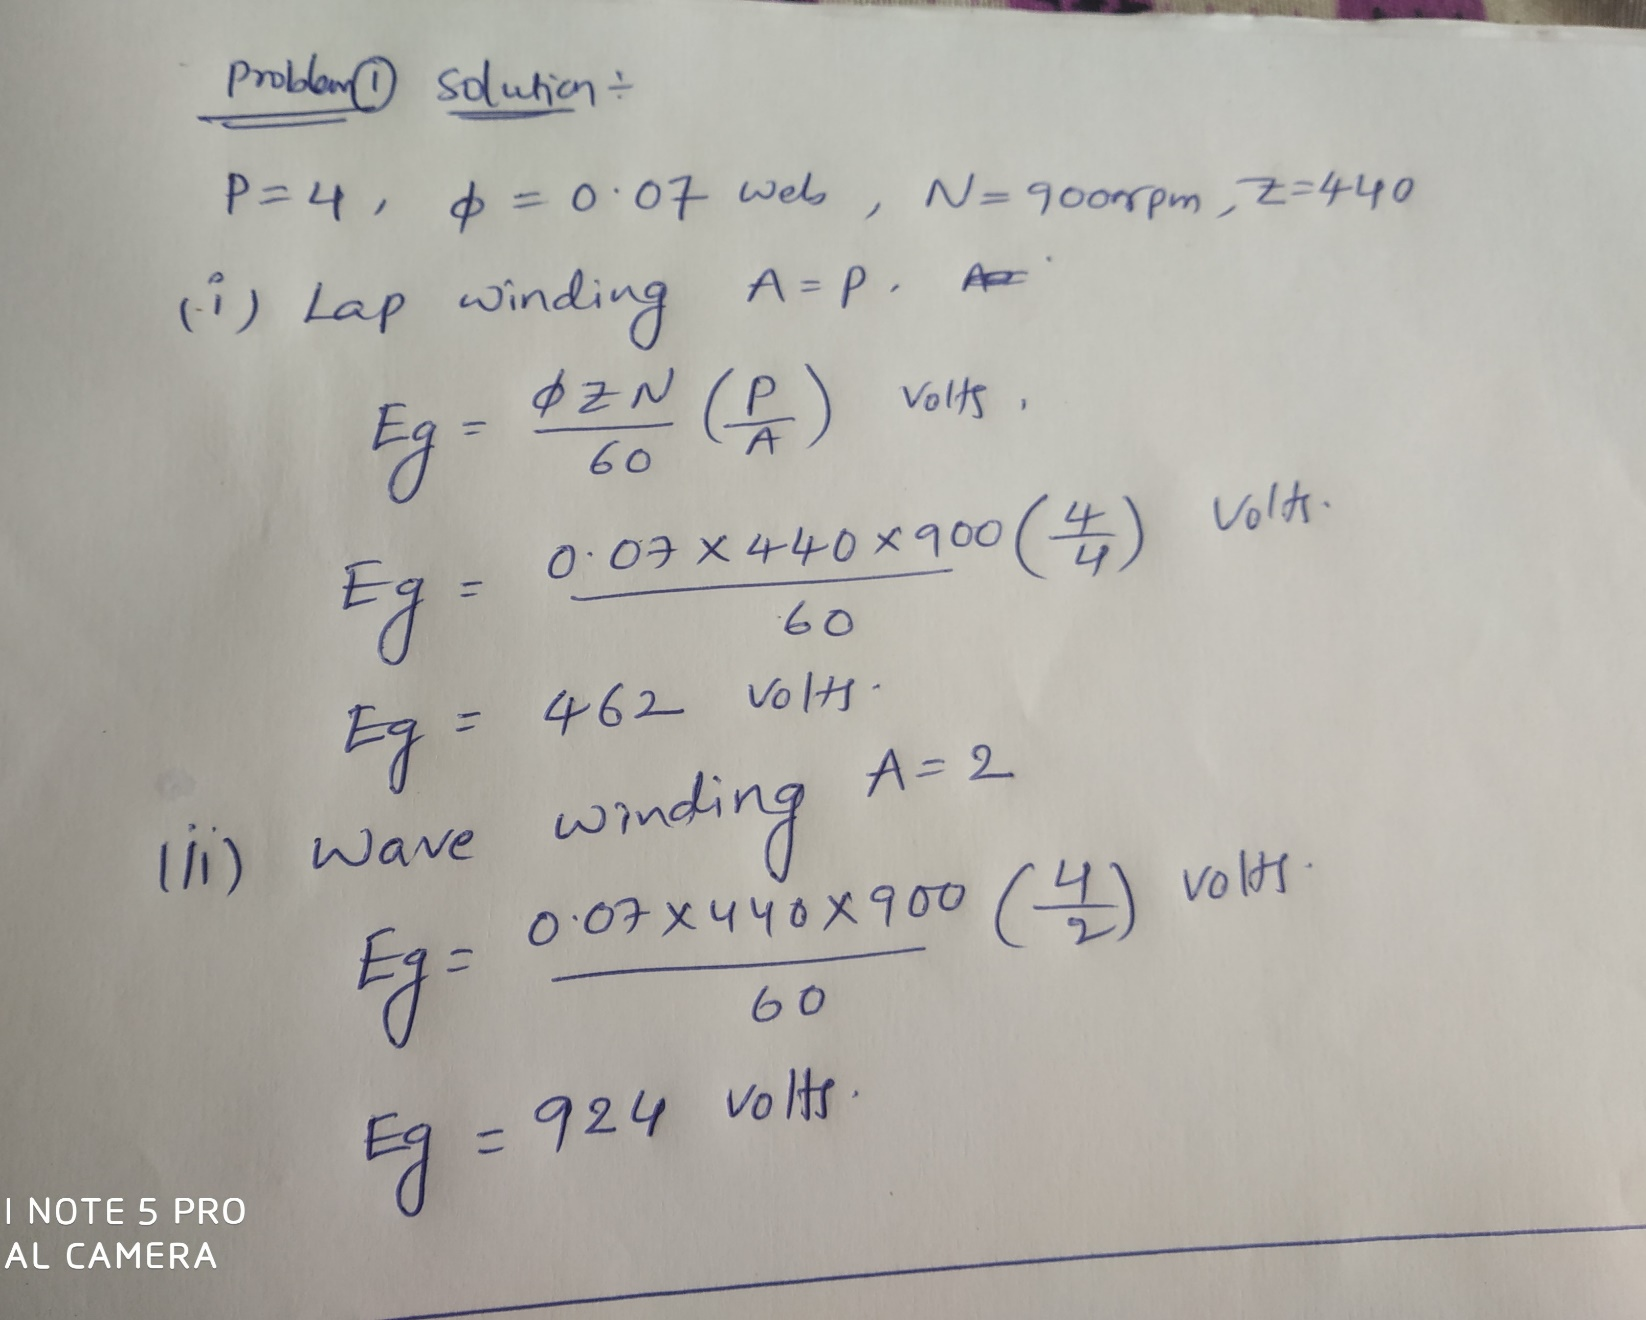 Problem ① Solution ÷
P = 4, ϕ = 0.07 web, N = 900rpm, Z = 440
(i) Lap winding A = P.
Eg = ϕZN/60 (P/A) Volts.
Eg = 0.07 × 440 × 900/60 (4/4) Volts.
Eg = 462 Volts.
(ii) Wave winding A = 2
Eg = 0.07 × 440 × 900/60 (4/2) Volts.
Eg = 924 Volts.
I NOTE 5 PRO
AL CAMERA